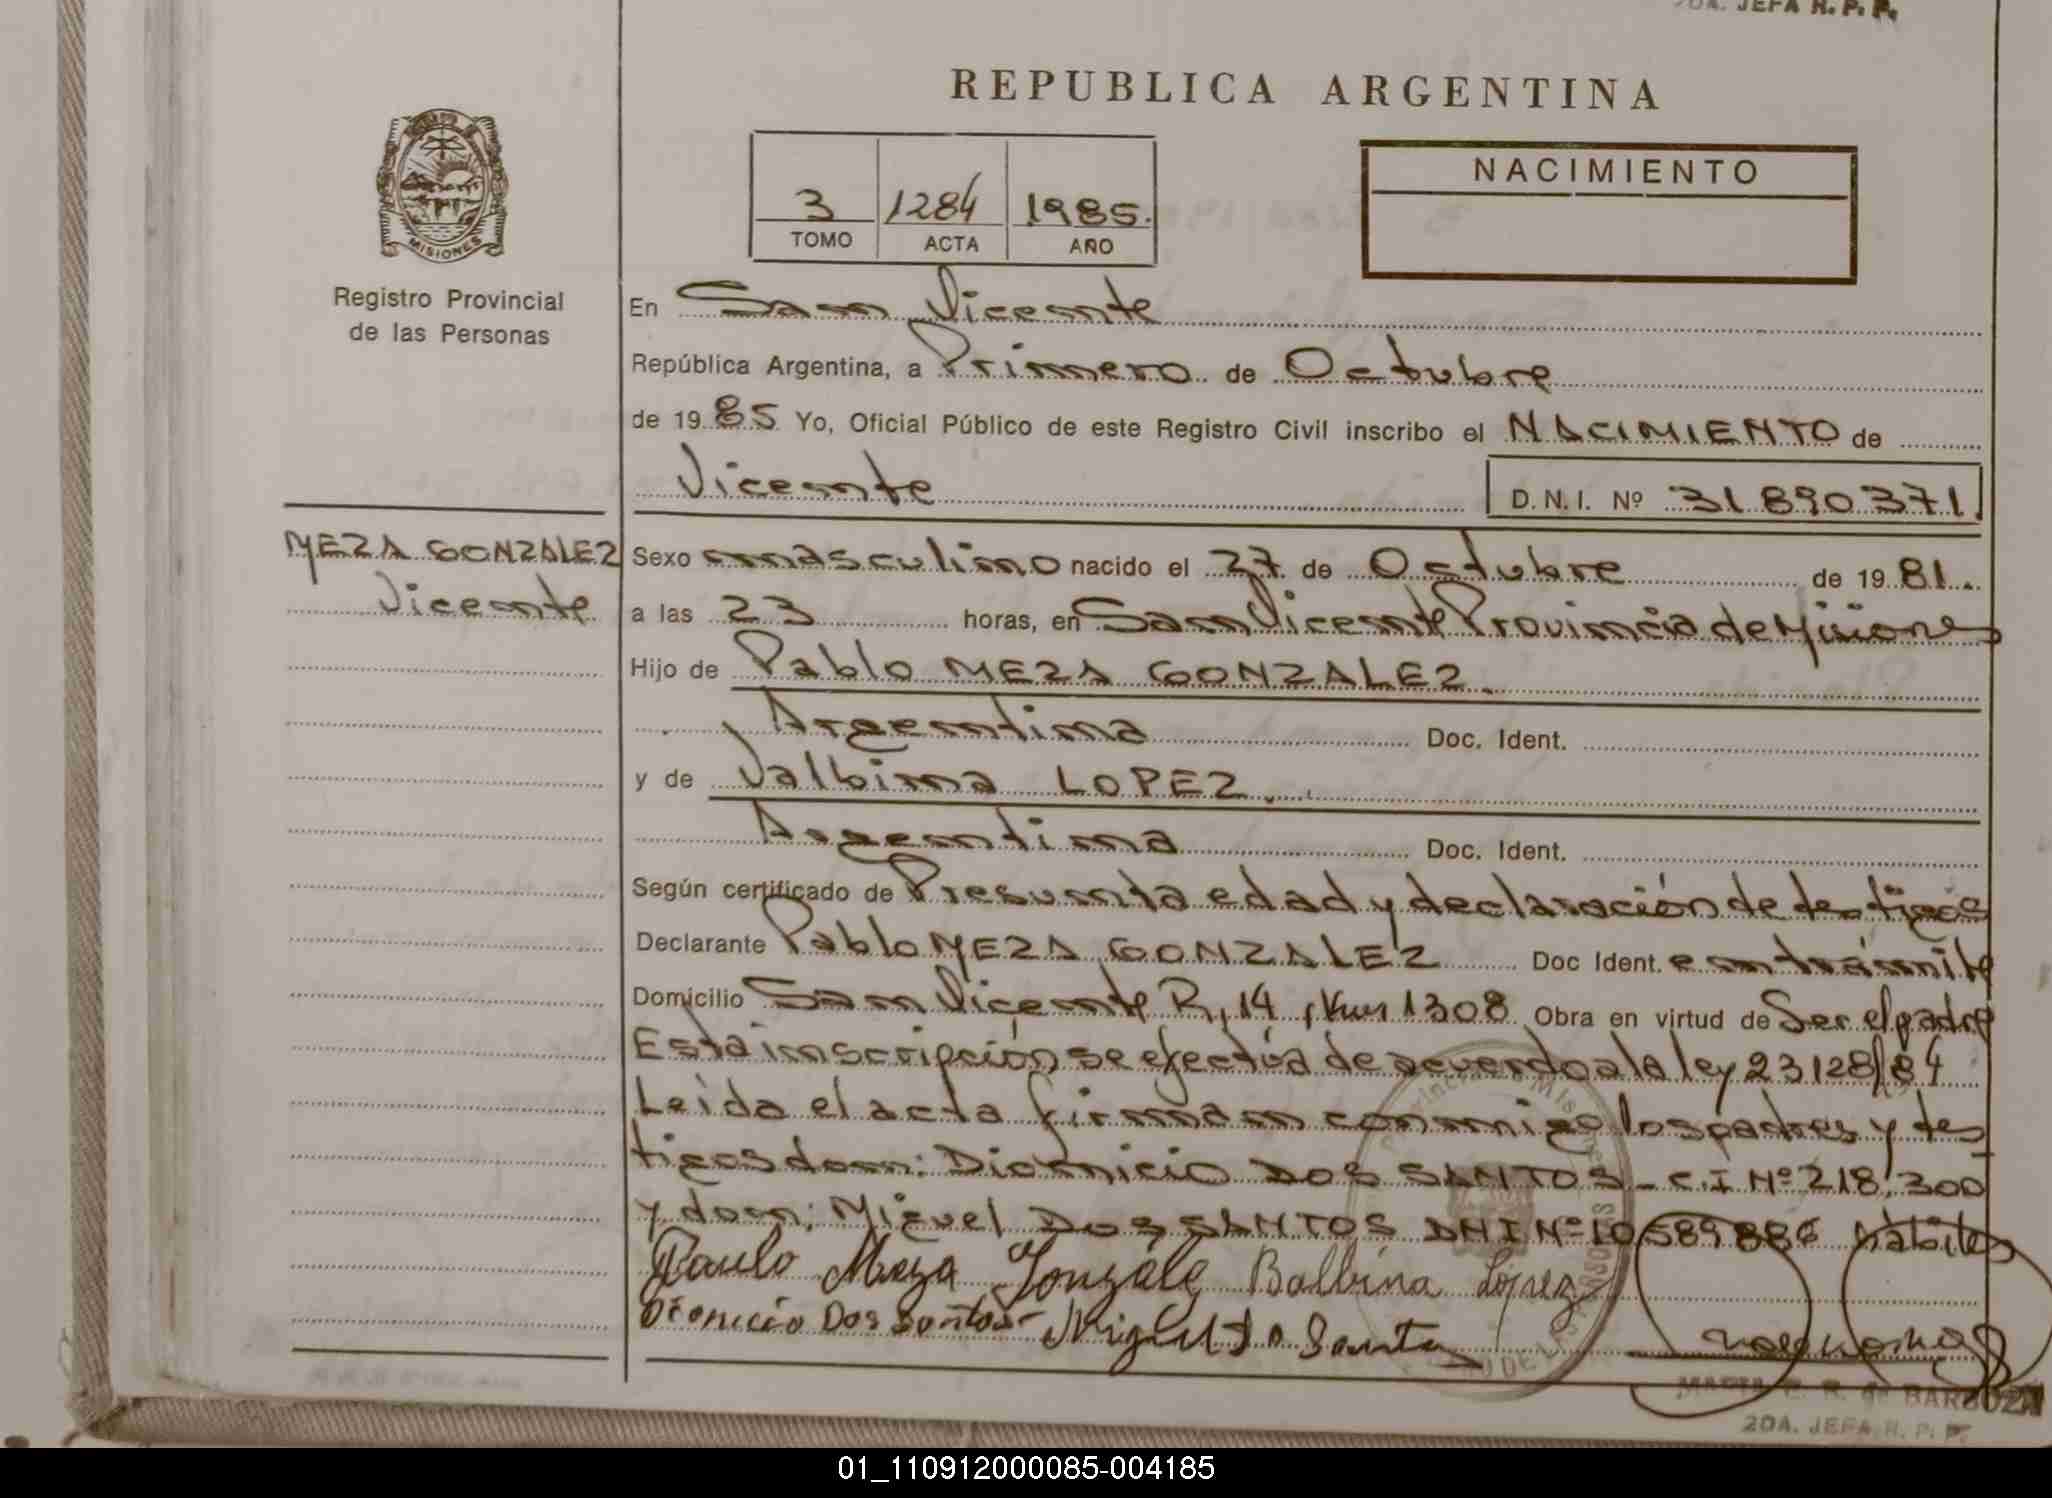 2DA. JEFA R. P. P.
REPUBLICA ARGENTINA
MISIONES
Registro Provincial
de las Personas
3 1284 1985.
TOMO ACTA AÑO
NACIMIENTO
En San Vicente
República Argentina, a Primero de Octubre
de 19 85 Yo, Oficial Público de este Registro Civil inscribo el NACIMIENTO de
Vicente D.N.I. Nº 31 890 371.
MEZA GONZALEZ
Vicente
Sexo masculino nacido el 27 de Octubre de 19 81.
a las 23 horas, en San Vicente Provincia de Misiones
Hijo de Pablo MEZA GONZALEZ.
Argentina Doc. Ident.
y de Valbina LOPEZ.
Argentina Doc. Ident.
Según certificado de Presunta edad y declaración de testigos
Declarante Pablo MEZA GONZALEZ Doc Ident. en trámite
Domicilio San Vicente R, 14, Km 1308 Obra en virtud de Ser el padre
Esta inscripción se efectúa de acuerdo a la ley 23128/84
Leída el acta firman conmigo los padres y tes
tigos don: Dionicio DOS SANTOS - C.I Nº 218.300
y don: Miguel DOS SANTOS DNI Nº 10589886 hábiles
Paulo Meza Gonzále Balbina López
Dionicio Dos Santos Miguel D. Santos
MARIA E. R. de BARBOZA
2DA. JEFA R. P. P.
01_110912000085-004185